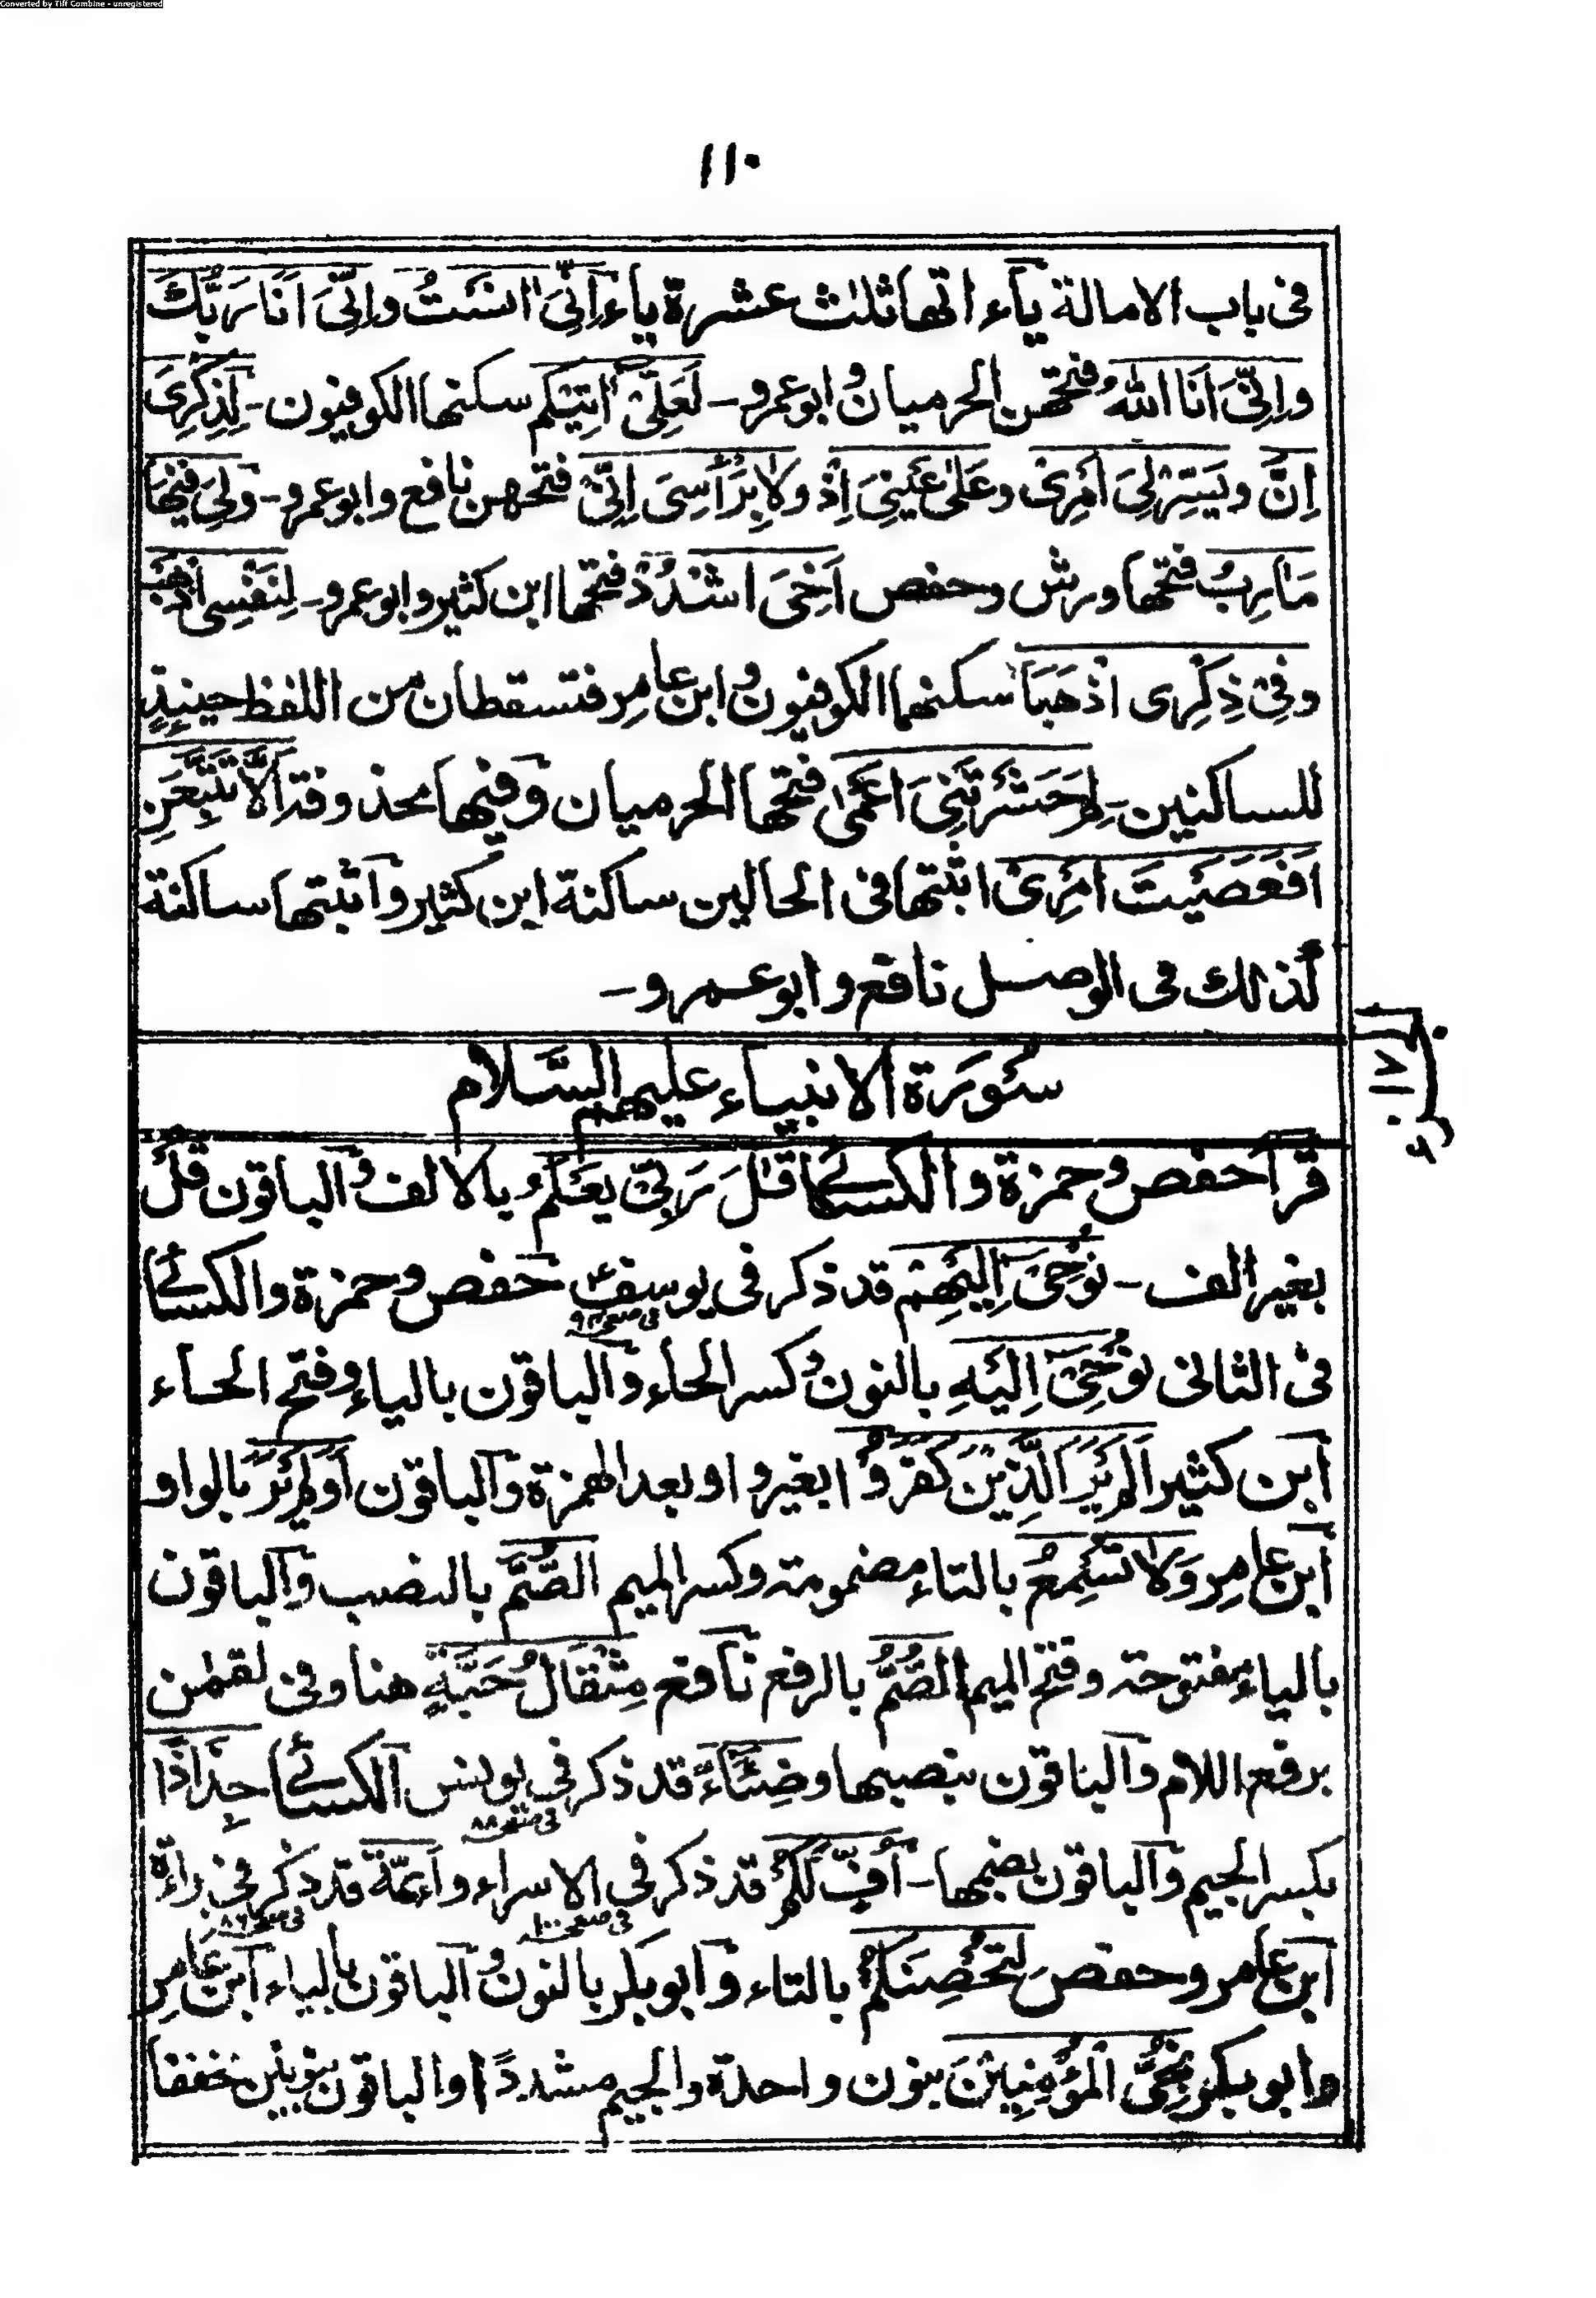 Converted by Tiff Combine - unregistered
١١٠
فى باب الامالة ياٰءاتها ثلٰث عشرة ياء اِنِّىَ اٰنَسْتُ واِنِّىَ اَنَا رَبُّكَ
واِنَّنِىَ اَنَا اللّٰهُ فتحهن الحرميان وابوعمرو - لَعَلِّىْ اٰتِيْكُم سكنها الكوفيون - لِذِكْرِىَ
اِنَّ ويَسِّرْ لِىَ اَمْرِىْ وعَلٰى عَيْنِىَ اِذْ ولَا بِرَأْسِىَ اِنِّىْ فتحهن نافع وابوعمرو - ولِىَ فِيْهَا
مَاٰرِبُ فتحها ورش وحفص اَخِىَ اشْدُدْ فتحها ابن كثير وابوعمرو - لِنَفْسِى اذْهَبْ
وفِىْ ذِكْرِى اذْهَبَا سكنهما الكوفيون وابن عامر فتسقطان من اللفظ حينئذٍ
للساكنين - لِمَ حَشَرْتَنِىَ اَعْمٰى فتحها الحرميان وفيها محذوفة اَلَّا تَتَّبِعَنِ
اَفَعَصَيْتَ اَمْرِىْ اثبتها فى الحالين ساكنة ابن كثير واثبتها ساكنة
كذلك فى الوصل نافع وابوعمرو -
سُوْرَة الانبياء عليهم السَّلام
قرأ حفص وحمزة والكسائى قٰلَ رَبِّىْ يَعْلَمُ بالالف والباقون قُلْ
بغير الف - نُوْحِىْ اِلَيْهِمْ قد ذكر فى يوسف حفص وحمزة والكسائى
فى الثانى نُوْحِىْ اِلَيْهِ بالنون وكسر الحاء والباقون بالياء وفتح الحاء
ابن كثير اَلَمْ يَرَ الَّذِيْنَ كَفَرُوْا بغير واو بعد الهمزة والباقون اَوَلَمْ يَرَ بالواو
ابن عامر وَلَا تُسْمِعُ بالتاء مضمومة وكسر الميم الصُّمَّ بالنصب والباقون
بالياء مفتوحة وفتح الميم الصُّمُّ بالرفع نافع مِثْقَالُ حَبَّةٍ هنا وفى لقمٰن
برفع اللام والباقون بنصبها وضِئَاءً قد ذكر فى يونس الكسائى جِذَاذًا
فى صفحه ٨٨
بكسر الجيم والباقون بضمها - اُفٍّ لَّكُمْ قد ذكر فى الاسراء واَئِمَّة قد ذكر فى براءة
فى صفحه ١٠٠
ابن عامر وحفص لِتُحْصِنَكُمْ بالتاء وابوبكر بالنون والباقون بالياء ابن عامر
وابوبكر نُجِّى الْمُؤْمِنِيْنَ بنون واحدة والجيم مشددًا والباقون بنونين مخففا